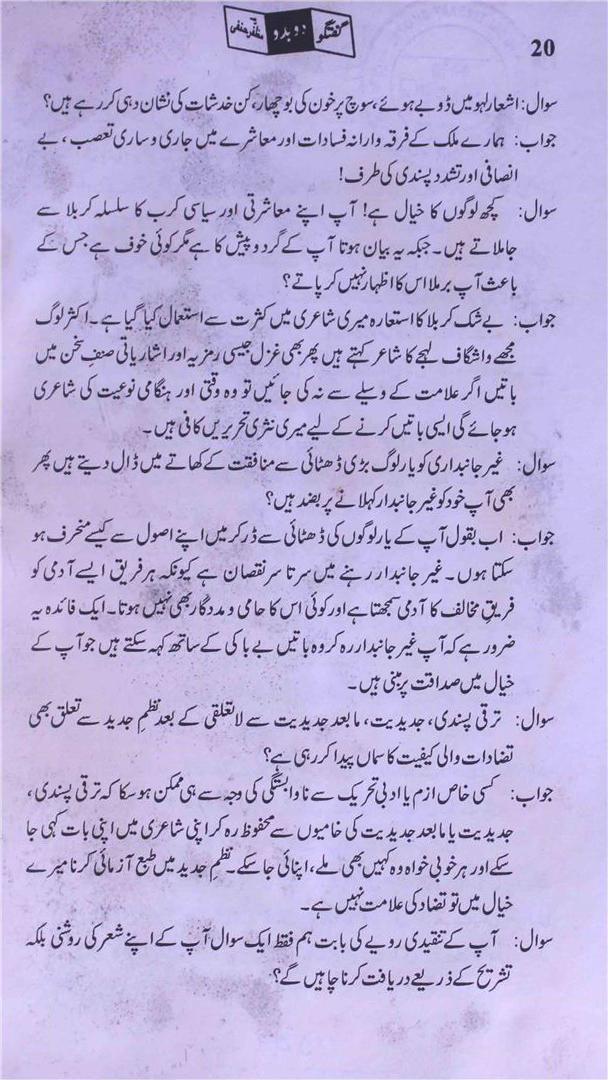 گفتگو دوبدو مظفر حنفی
20
سوال: اشعار لہو میں ڈوبے ہوئے، سوچ پر خون کی بوچھار، کن خدشات کی نشان دہی کر رہے ہیں؟
جواب: ہمارے ملک کے فرقہ وارانہ فسادات اور معاشرے میں جاری و ساری تعصب، بے
انصافی اور تشدد پسندی کی طرف!
سوال: کچھ لوگوں کا خیال ہے! آپ اپنے معاشرتی اور سیاسی کرب کا سلسلہ کربلا سے
جاملاتے ہیں۔ جبکہ یہ بیان ہوتا آپ کے گرد و پیش کا ہے مگر کوئی خوف ہے جس کے
باعث آپ برملا اس کا اظہار نہیں کر پاتے؟
جواب: بے شک کربلا کا استعارہ میری شاعری میں کثرت سے استعمال کیا گیا ہے۔ اکثر لوگ
مجھے واشگاف لہجے کا شاعر کہتے ہیں پھر بھی غزل جیسی رمزیہ اور اشاریاتی صنفِ سخن میں
باتیں اگر علامت کے وسیلے سے نہ کی جائیں تو وہ وقتی اور ہنگامی نوعیت کی شاعری
ہو جائے گی ایسی باتیں کرنے کے لیے میری نثری تحریریں کافی ہیں۔
سوال: غیر جانبداری کو یار لوگ بڑی ڈھٹائی سے منافقت کے کھاتے میں ڈال دیتے ہیں پھر
بھی آپ خود کو غیر جانبدار کہلانے پر بضد ہیں؟
جواب: اب بقول آپ کے یار لوگوں کی ڈھٹائی سے ڈر کر میں اپنے اصول سے کیسے منحرف ہو
سکتا ہوں۔ غیر جانبدار رہنے میں سرتاسر نقصان ہے کیونکہ ہر فریق ایسے آدمی کو
فریقِ مخالف کا آدمی سمجھتا ہے اور کوئی اس کا حامی و مددگار بھی نہیں ہوتا۔ ایک فائدہ یہ
ضرور ہے کہ آپ غیر جانبدار رہ کر وہ باتیں بے باکی کے ساتھ کہہ سکتے ہیں جو آپ کے
خیال میں صداقت پر مبنی ہیں۔
سوال: ترقی پسندی، جدیدیت، مابعد جدیدیت سے لاتعلقی کے بعد نظمِ جدید سے تعلق بھی
تضادات والی کیفیت کا سماں پیدا کر رہی ہے؟
جواب: کسی خاص ازم یا ادبی تحریک سے ناوابستگی کی وجہ سے ہی ممکن ہو سکا کہ ترقی پسندی،
جدیدیت یا مابعد جدیدیت کی خامیوں سے محفوظ رہ کر اپنی شاعری میں اپنی بات کہی جا
سکے اور ہر خوبی خواہ وہ کہیں بھی ملے، اپنائی جا سکے۔ نظمِ جدید میں طبع آزمائی کرنا میرے
خیال میں تو تضاد کی علامت نہیں ہے۔
سوال: آپ کے تنقیدی رویے کی بابت ہم فقط ایک سوال آپ کے اپنے شعر کی روشنی بلکہ
تشریح کے ذریعے دریافت کرنا چاہیں گے؟